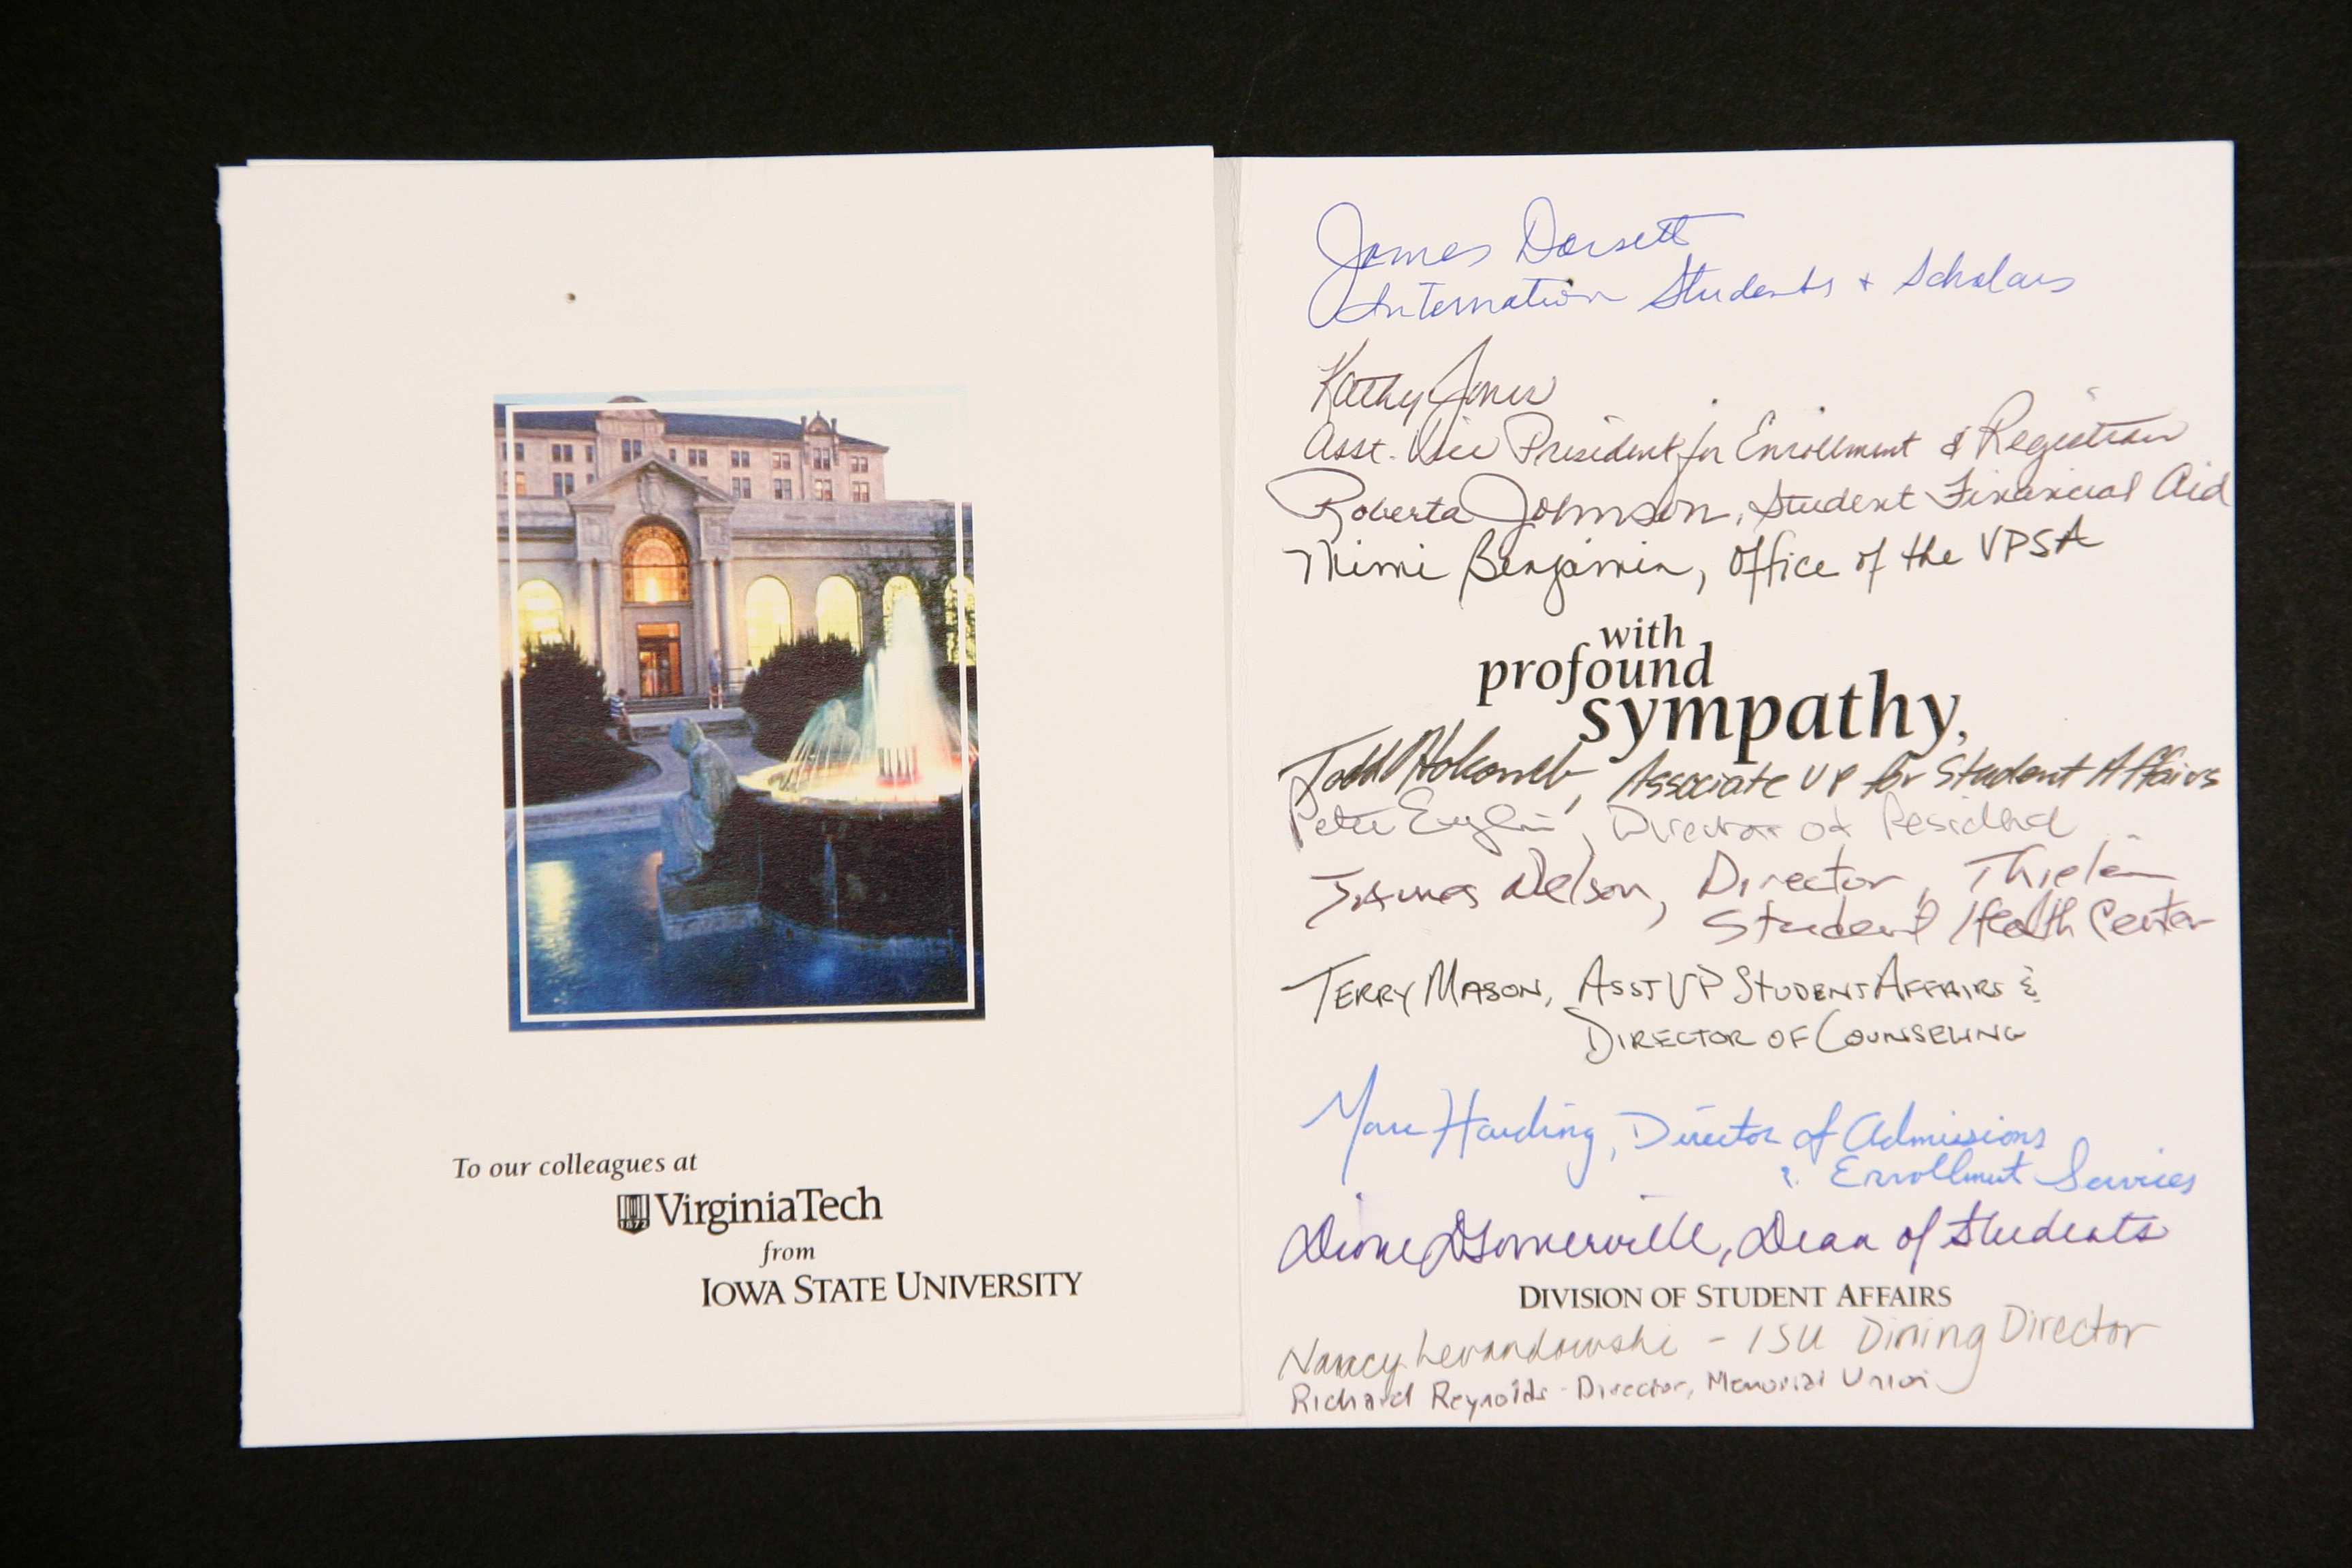 To our colleagues at
1872 VirginiaTech
from
IOWA STATE UNIVERSITY
James Dorsett
Internation Students + Scholars
Kathy Jones
Asst. Vice President for Enrollment & Registrar
Roberta Johnson, Student Financial Aid
Mimi Benjamin, Office of the VPSA
with
profound
sympathy,
Todd Holcomb, Associate VP for Student Affairs
Peter Englin, Director of
James Nelson, Director, Thielen
Student Health Center
TERRY MASON, ASST VP STUDENT AFFAIRS &
DIRECTOR OF COUNSELING
Marc Harding, Director of Admissions
& Enrollment Services
Dione D Somerville, Dean of Students
DIVISION OF STUDENT AFFAIRS
Nancy Levandowski - ISU Dining Director
Richard Reynolds - Director, Memorial Union